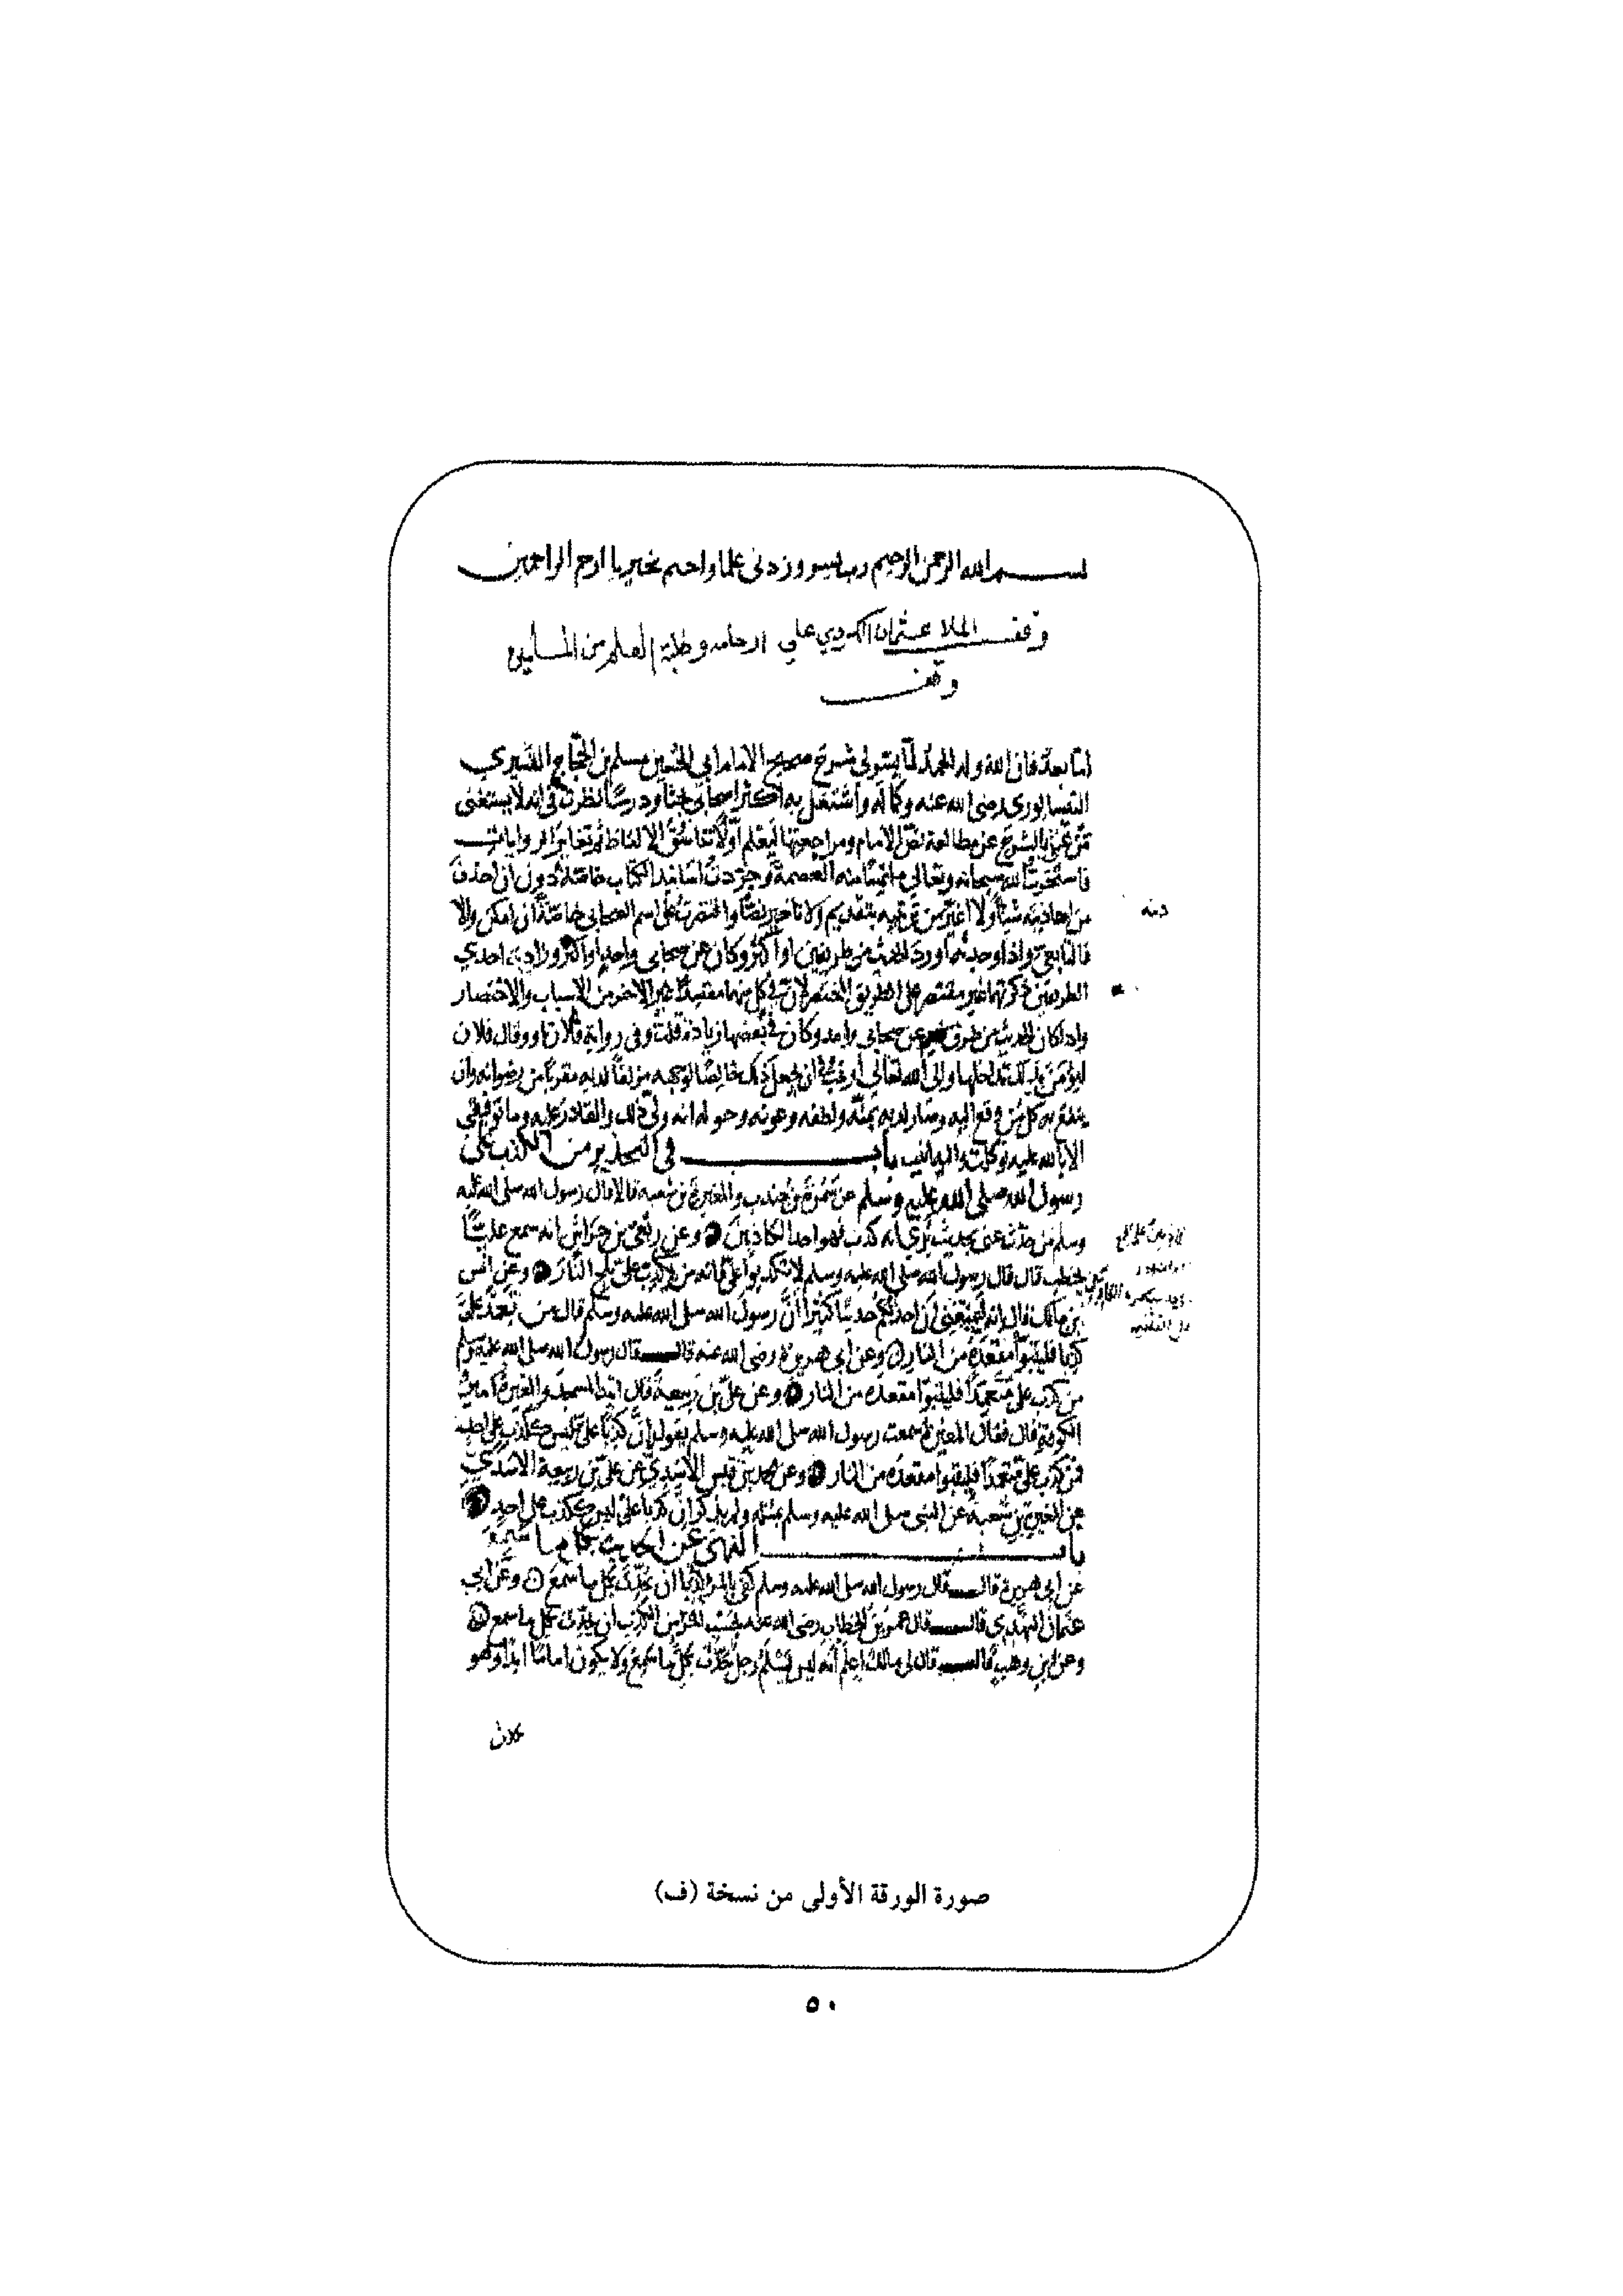 بسم الله الرحمن الرحيم رب يسر وزدني علما واختم بخير يا ارحم الراحمين
وقف الملا عثمان الكردي علي ارحامه وطلبة العلم من المسلمين
وقف
اما بعد فان الله وله الحمد لما يتولى شرح صحيح الامام ابي الحسين مسلم بن الحجاج القشيري
النيسابوري رضى الله عنه وكماله واشتغل به اكثر اصحابي بحثا ودرسا نظرت في انه لا يستغنى
بالشرح عن مطالعة نص الامام ومراجعتها ليعلم اولا تناسق الالفاظ ثم تغاير الروايات
فاستخرت الله سبحانه وتعالى منه العصمة وجردت اسانيد الكتاب خاصة دون ان احذف
من احاديثه شيئا ولا اغير من ترتيبه بتقديم ولا تاخير واختصرت على اسم الصحابي خاصة ان امكن والا
فالتابعي واذا اورد الحديث من طريقين او اكثر وكان عن صحابي واحد او اكثر وزاد احدي
الطريقين ذكرتهما غير مقتصر على الطريق المختصر لان في كل منهما مقصدا غير الاخر من الاسباب والاختصار
واذا كان الحديث من طرق عن صحابي واحد وكان في بعضها زيادة قلت وفي رواية فلان او وقال فلان
ليؤمن بذلك تداخلها والى الله تعالى ارغب في ان يجعل ذلك خالصا لوجهه مزلفا لديه مقربا من رضوانه وان
ينفع به كل من وقع اليه وصار لديه بمنه ولطفه وعونه وحوله انه ولي ذلك والقادر عليه وما توفيقي
الا بالله عليه توكلت واليه انيب باب في التحذير من الكذب على
رسول الله صلى الله عليه وسلم عن سمرة بن جندب والمغيرة بن شعبة قالا قال رسول الله صلى الله عليه
وسلم من حدث عني بحديث يرى انه كذب فهو احد الكاذبين وعن ربعي بن حراش انه سمع عليا
يخطب قال قال رسول الله صلى الله عليه وسلم لا تكذبوا علي فانه من يكذب علي يلج النار وعن انس
بن مالك قال انه ليمنعني ان احدثكم حديثا كثيرا ان رسول الله صلى الله عليه وسلم قال من تعمد علي
كذبا فليتبوأ مقعده من النار وعن ابي هريرة رضى الله عنه قال قال رسول الله صلى الله عليه وسلم
من كذب علي متعمدا فليتبوا مقعده من النار وعن علي بن ربيعة قال اتيت المسجد والمغيرة امير
الكوفة قال فقال المغيرة سمعت رسول الله صلى الله عليه وسلم يقول ان كذبا علي ليس ككذب على احد
فمن كذب علي متعمدا فليتبوا مقعده من النار وعن محمد بن قيس الاسدي عن علي بن ربيعة الاسدي
عن المغيرة بن شعبة عن النبي صلى الله عليه وسلم بمثله ولم يذكر ان كذبا علي ليس ككذب على احد
باب النهي عن الحديث بكل ما سمع
عن ابي هريرة قال قال رسول الله صلى الله عليه وسلم كفى بالمرء كذبا ان يحدث بكل ما سمع وعن ابي
عثمان النهدي قال قال عمر بن الخطاب رضى الله عنه بحسب المرء من الكذب ان يحدث بكل ما سمع
وعن ابن وهب قال قال لي مالك اعلم انه ليس يسلم رجل حدث بكل ما سمع ولا يكون اماما ابدا وهو
صورة الورقة الأولى من نسخة (ف)
٥٠